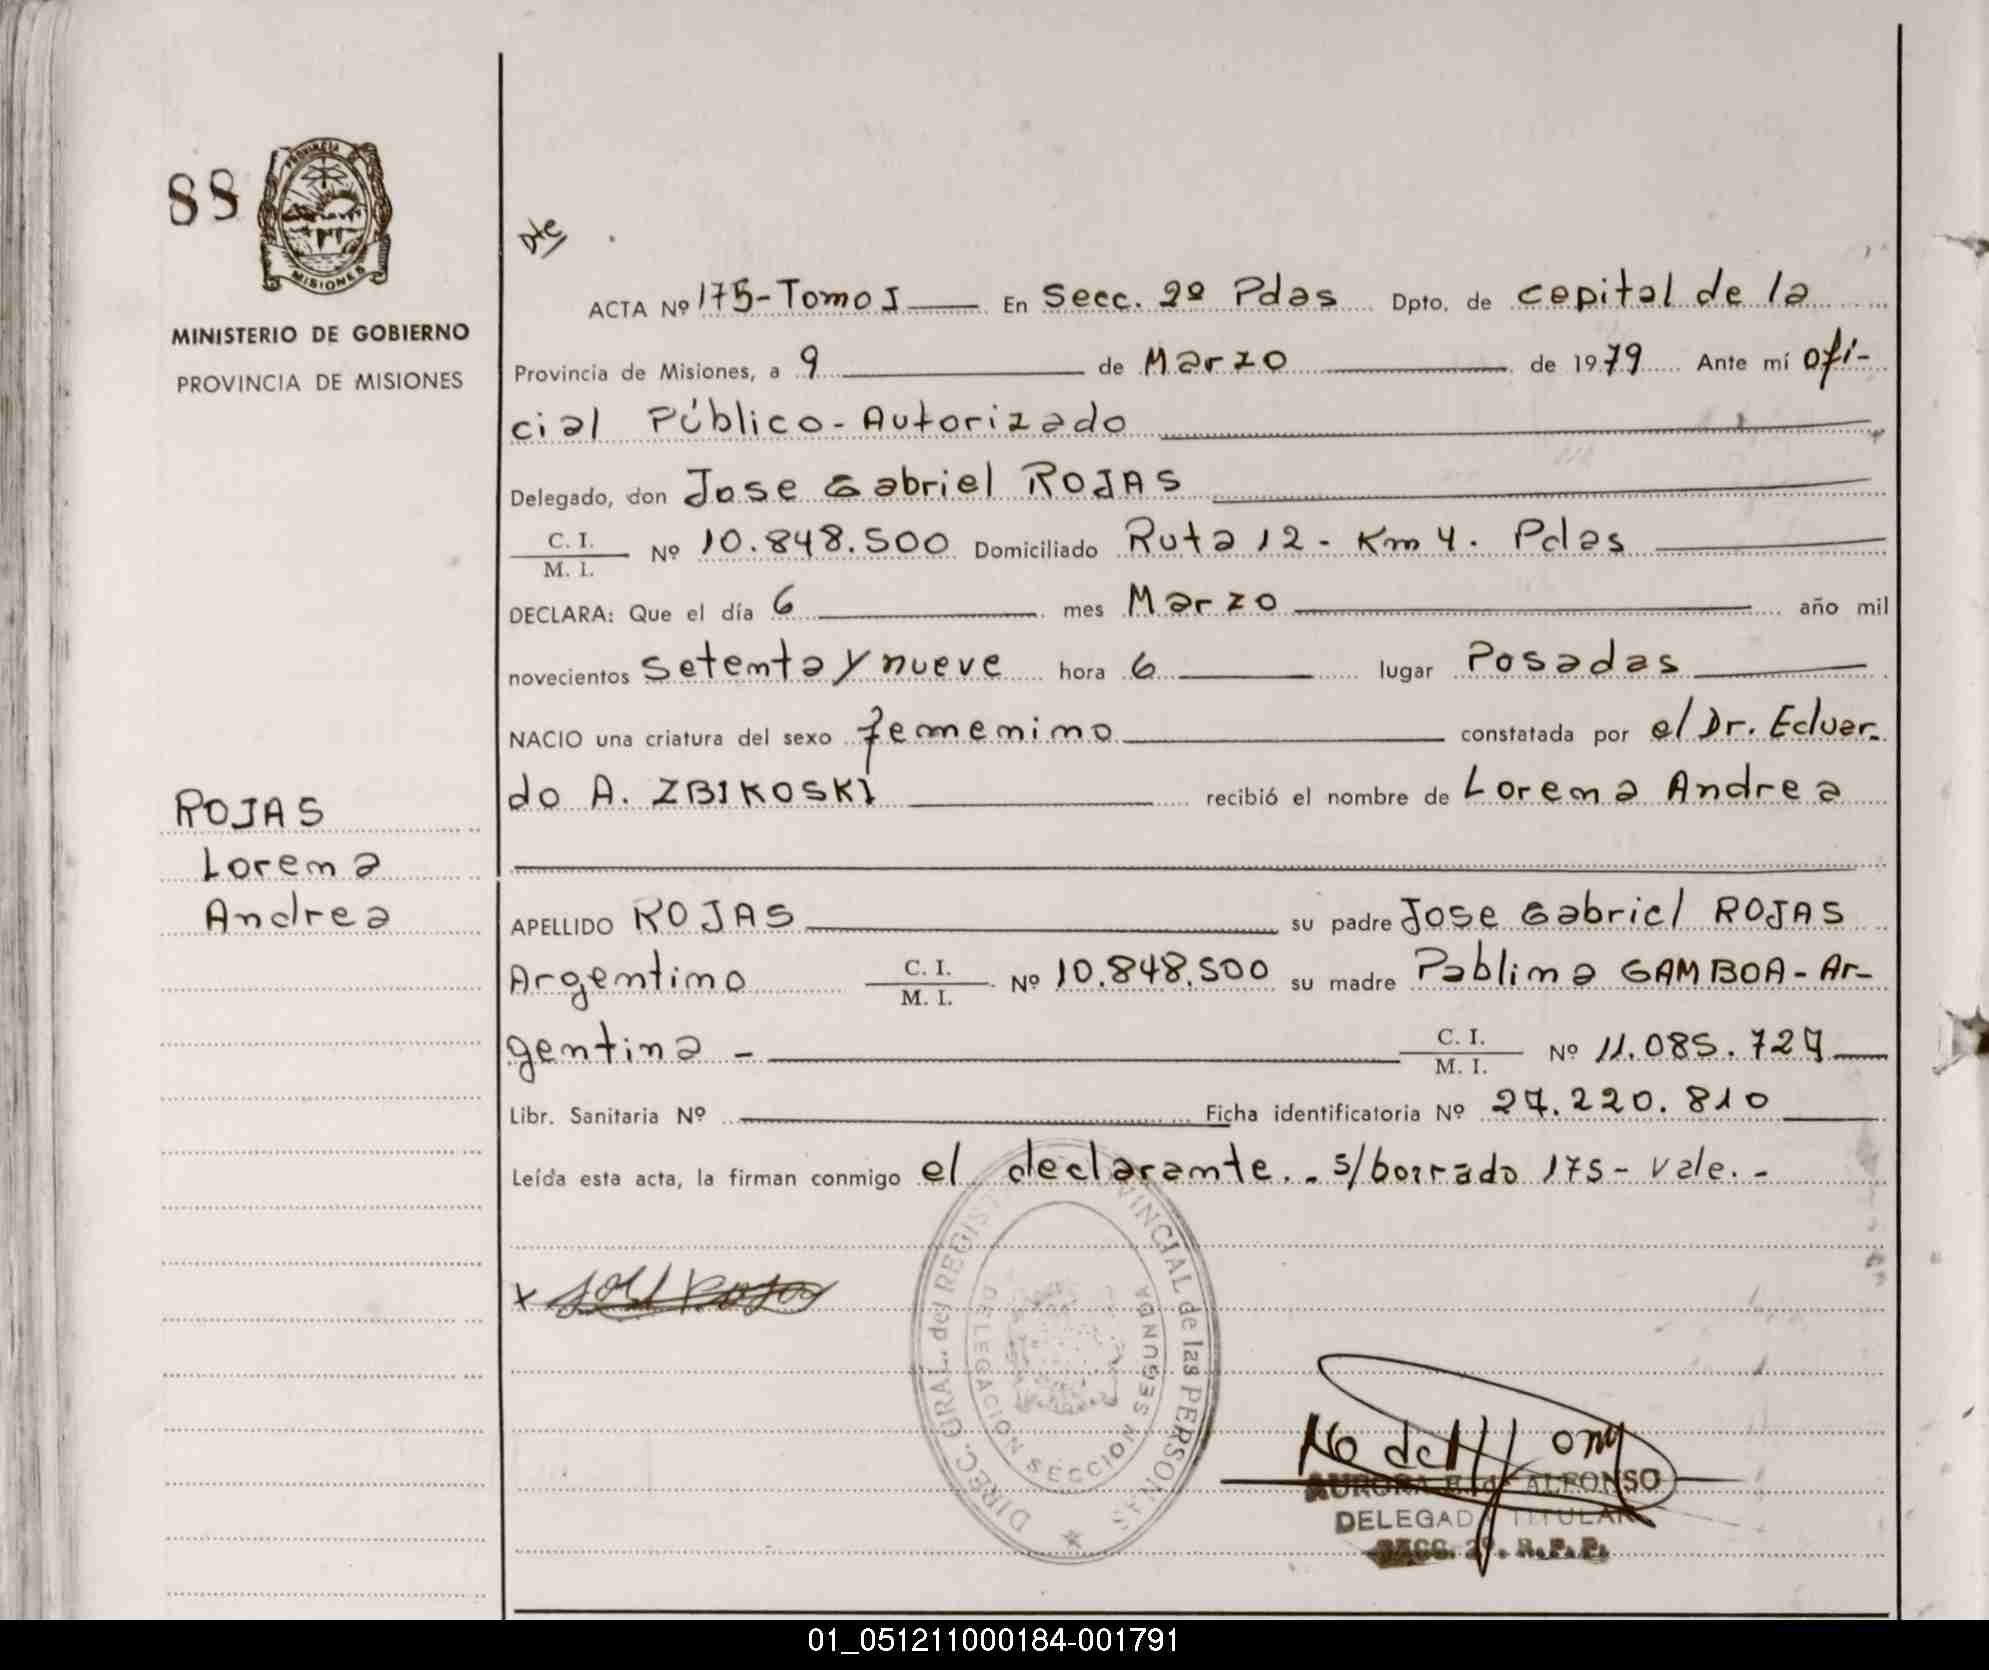 88
PROVINCIA DE
MISIONES
MINISTERIO DE GOBIERNO
PROVINCIA DE MISIONES
ROJAS
Lorena
Andrea
Dte
ACTA Nº 175-Tomo I En Secc. 2º Pdas Dpto. de capital de la
Provincia de Misiones, a 9 de Marzo de 1979 Ante mí ofi-
cial Público-Autorizado
Delegado, don Jose Gabriel ROJAS
C. I.
M. I. Nº 10.848.500 Domiciliado Ruta 12 - Km 4. Pdas
DECLARA: Que el día 6 mes Marzo año mil
novecientos setenta y nueve hora 6 lugar Posadas
NACIO una criatura del sexo femenino constatada por el Dr. Eduar-
do A. ZBIKOSKI recibió el nombre de Lorena Andrea
APELLIDO ROJAS su padre Jose Gabriel ROJAS
Argentino C. I. M. I. Nº 10.848.500 su madre Pablina GAMBOA - Ar-
gentina - C. I. M. I. Nº 11.085.727
Libr. Sanitaria Nº Ficha identificatoria Nº 27.220.810
Leída esta acta, la firman conmigo el declarante.- s/borrado 175- vale.-
x José Rojas
DIREC. GRAL. del REGISTRO PROVINCIAL de las PERSONAS
DELEGACION SECCION SEGUNDA
AURORA de ALFONSO
DELEGADA TITULAR
SECC. 2º. R.P.P.
01_051211000184-001791